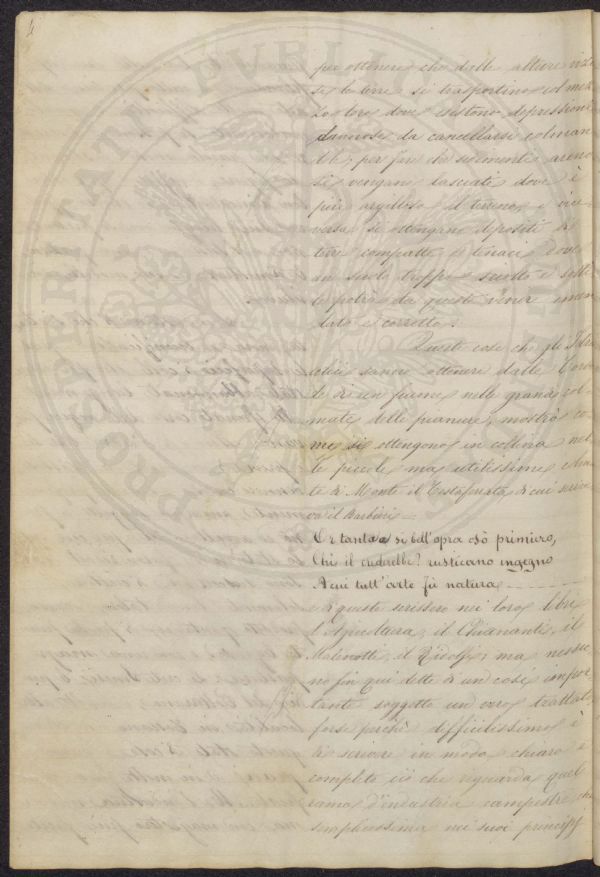 4
per ottenere che dalle alture
se le terre si trasportino col mez
zo loro dove esistono depressioni
dannose da cancellarsi colman
dole; per far che sieno
si vengano lasciati dove è
più argilloso il terreno, e vice
versa si ottengano depositi di
terre compatte e tenaci dove
un suolo troppo sciolto e sotti
le potrà da queste venir emen
dato e corretto.
Queste cose che gl' Idra
ulici sanno ottenere dalle torbi
de di un fiume nelle grandi col
mate delle pianure, mostrò co
me si ottengono in collina nel
le piccole ma utilissime colma
te di Monte il Testaferrata, di cui scrive
va il Barbieri —
Or tanta a sì bell'opra osò primiero,
Chi il crederebbe? rusticano ingegno
A cui tutt'arte fu natura
e di queste scrissero nei loro libri
d'Agricoltura, il Chiarenti, il
Malenotti, il Ridolfi; ma nessu
no fin qui dette di un così impor
tante soggetto un vero trattato,
forse perchè difficilissimo è
di scrivere in modo chiaro e
completo ciò che riguarda quel
ramo d'industria campestre che
semplicissima nei suoi principj
PROSPERITATI PVBLICAE